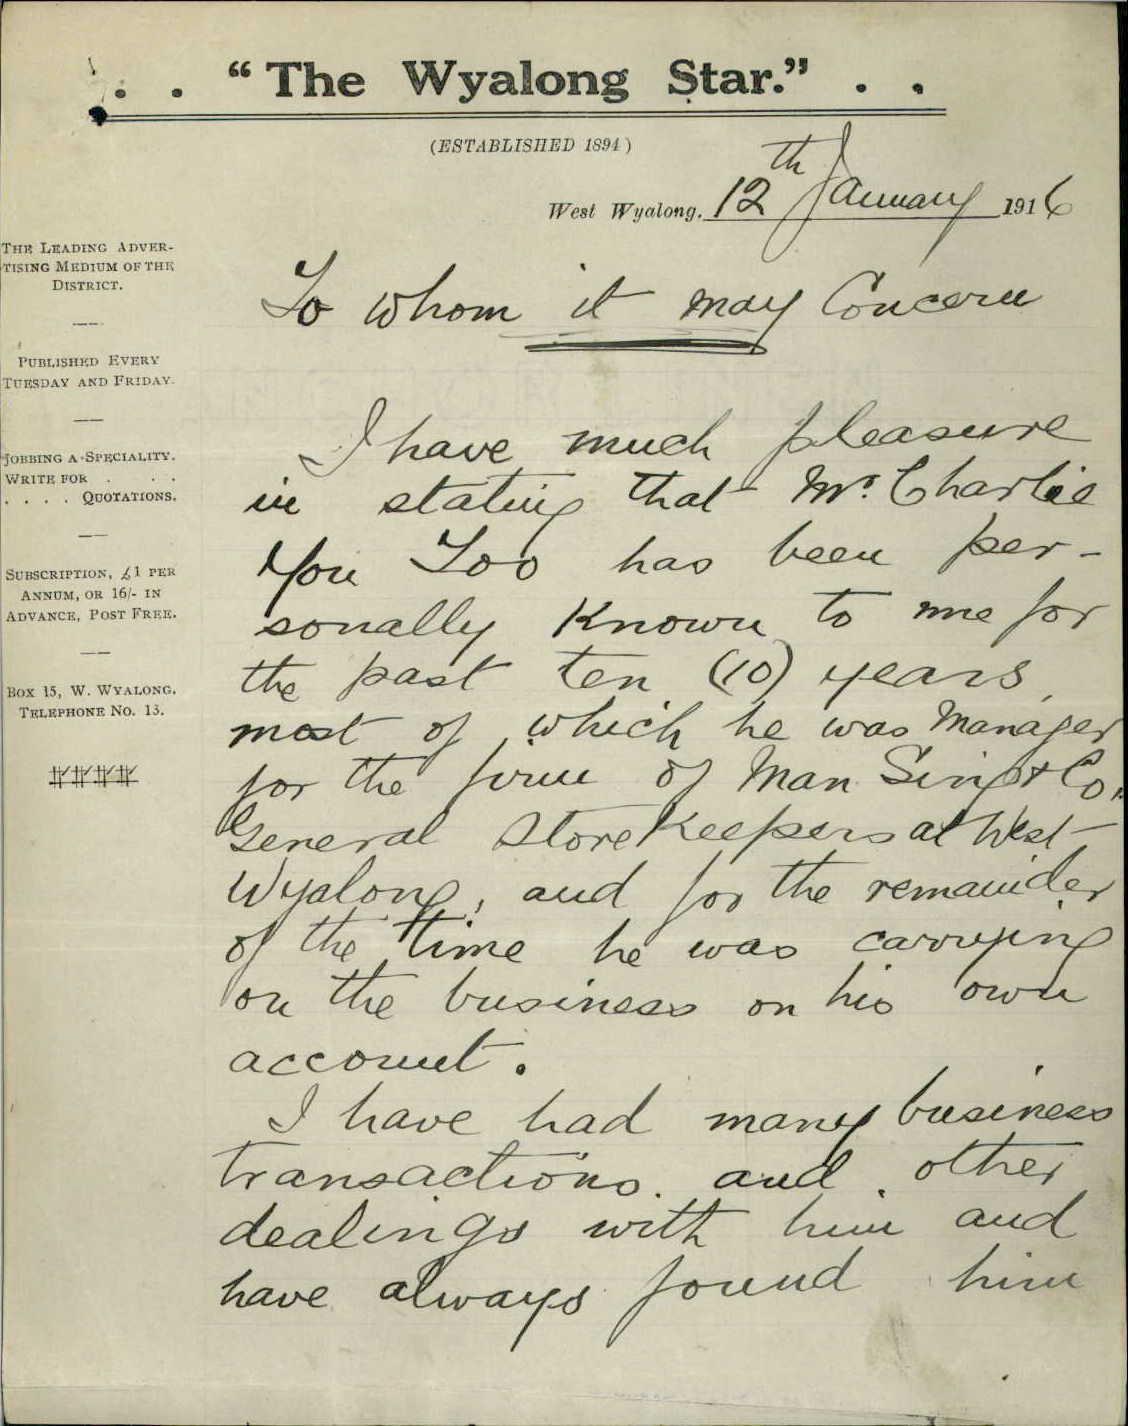 . . "The Wyalong Star." . .
(ESTABLISHED 1894)
West Wyalong. 12th January 1916
THE LEADING ADVER-
TISING MEDIUM OF THE
DISTRICT.
PUBLISHED EVERY
TUESDAY AND FRIDAY.
JOBBING A SPECIALITY.
WRITE FOR . . .
. . . . QUOTATIONS.
SUBSCRIPTION, £1 PER
ANNUM, OR 16/- IN
ADVANCE, POST FREE.
BOX 15, W. WYALONG.
TELEPHONE NO. 13.
To whom it may Concern
I have much pleasure
in stating that Mr. Charlie
You Too has been per-
sonally known to me for
the past ten (10) years,
most of which he was Manager
for the firm of Man Sing & Co.
General Storekeepers at West
Wyalong, and for the remainder
of the time he was carrying
on the business on his own
account.
I have had many business
transactions and other
dealings with him and
have always found him